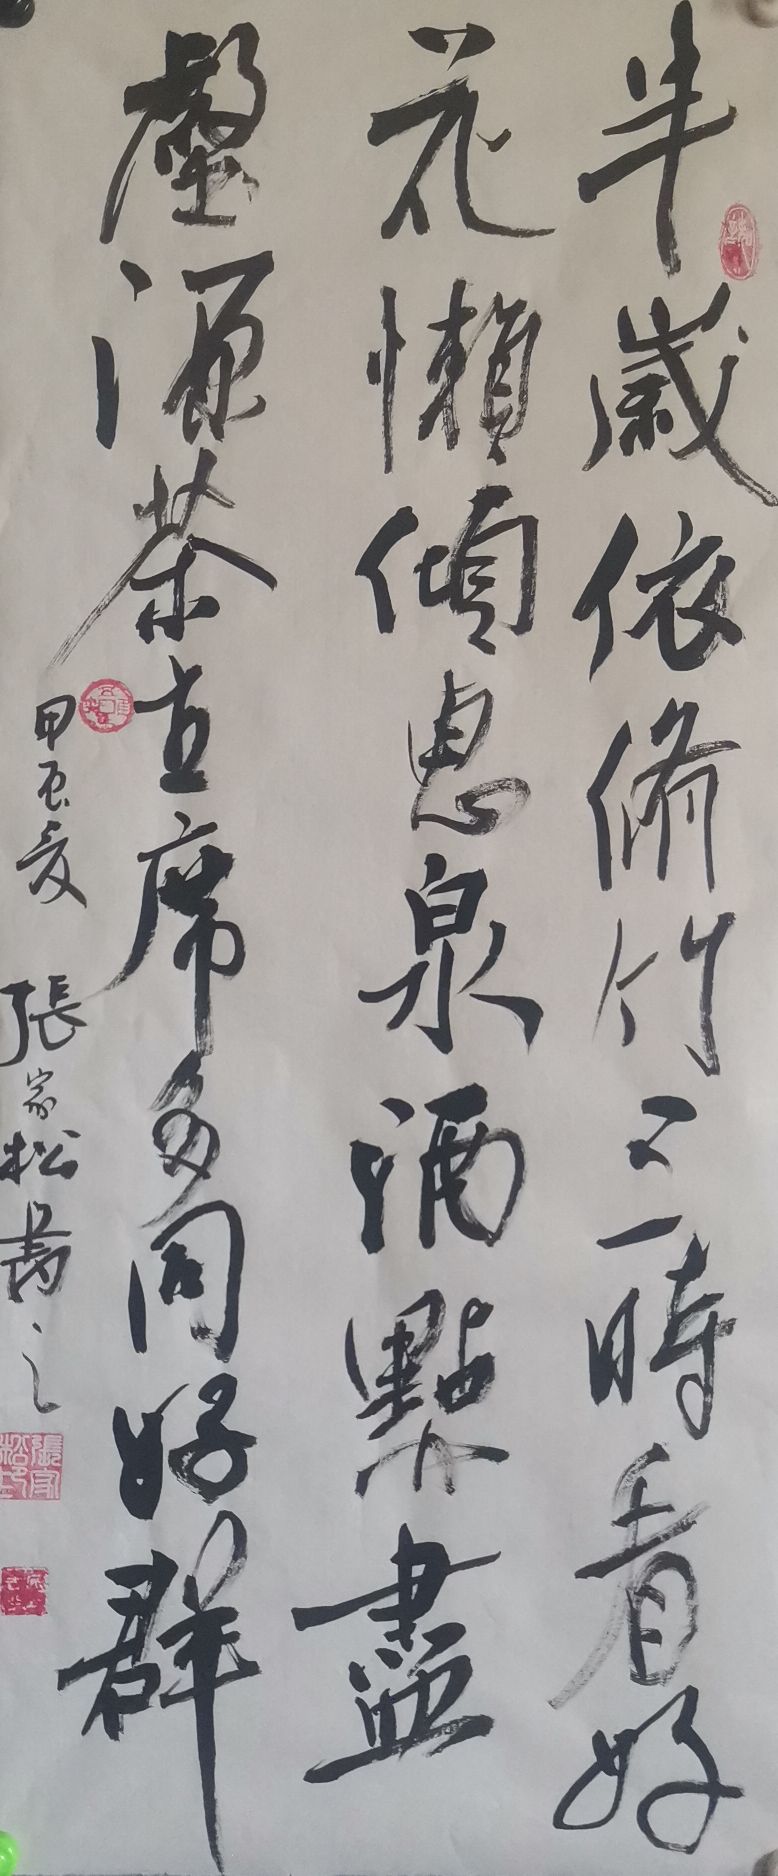 半歲依脩竹三時看好
花懶傾惠泉酒點盡
壑源茶直席多同好群
甲辰夏 張家松書之
張家松印